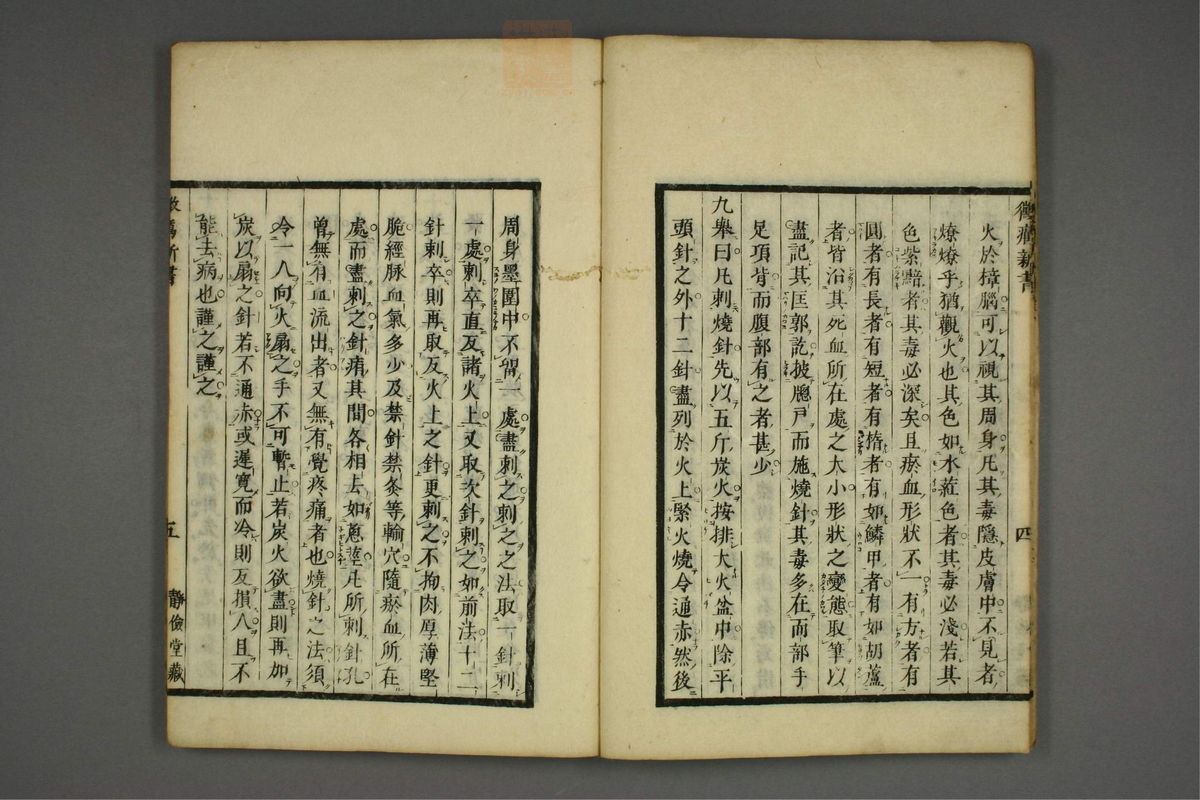 火於樟腦可以視其周身凡其毒隱皮膚中不見者
燎燎乎猶觀火也其色如水葒色者其毒必淺若其
色紫黯者其毒必深矣且瘀血形狀不一有方者有
圓者有長者有短者有楕者有如鱗甲者有如胡蘆
者皆沿其死血所在處之大小形狀之變態取筆以
盡記其匡郭訖披牕戸而施燒針其毒多在面部手
足項背而腹部有之者甚少
九舉曰凡刺燒針先以五斤炭火按排大火盆中除平
頭針之外十二針盡列於火上緊火燒令通赤然後
四
周身墨圍中不留一處盡刺之刺之之法取一針刺
一處刺卒直反諸火上又取次針刺之如前法十二
針刺卒則再取反火上之針更刺之不拘肉厚薄堅
脆經脉血氣多少及禁針禁灸等輸穴隨瘀血所在
處而盡刺之針痏其間各相去如葱莖凡所刺針孔
曾無有血流出者又無有覺疼痛者也燒針之法須
令一人向火扇之手不可暫止若炭火欲盡則再加
炭以扇之針若不通赤或遲寛而冷則反損人且不
能去病也謹之謹之
五
靜儉堂藏